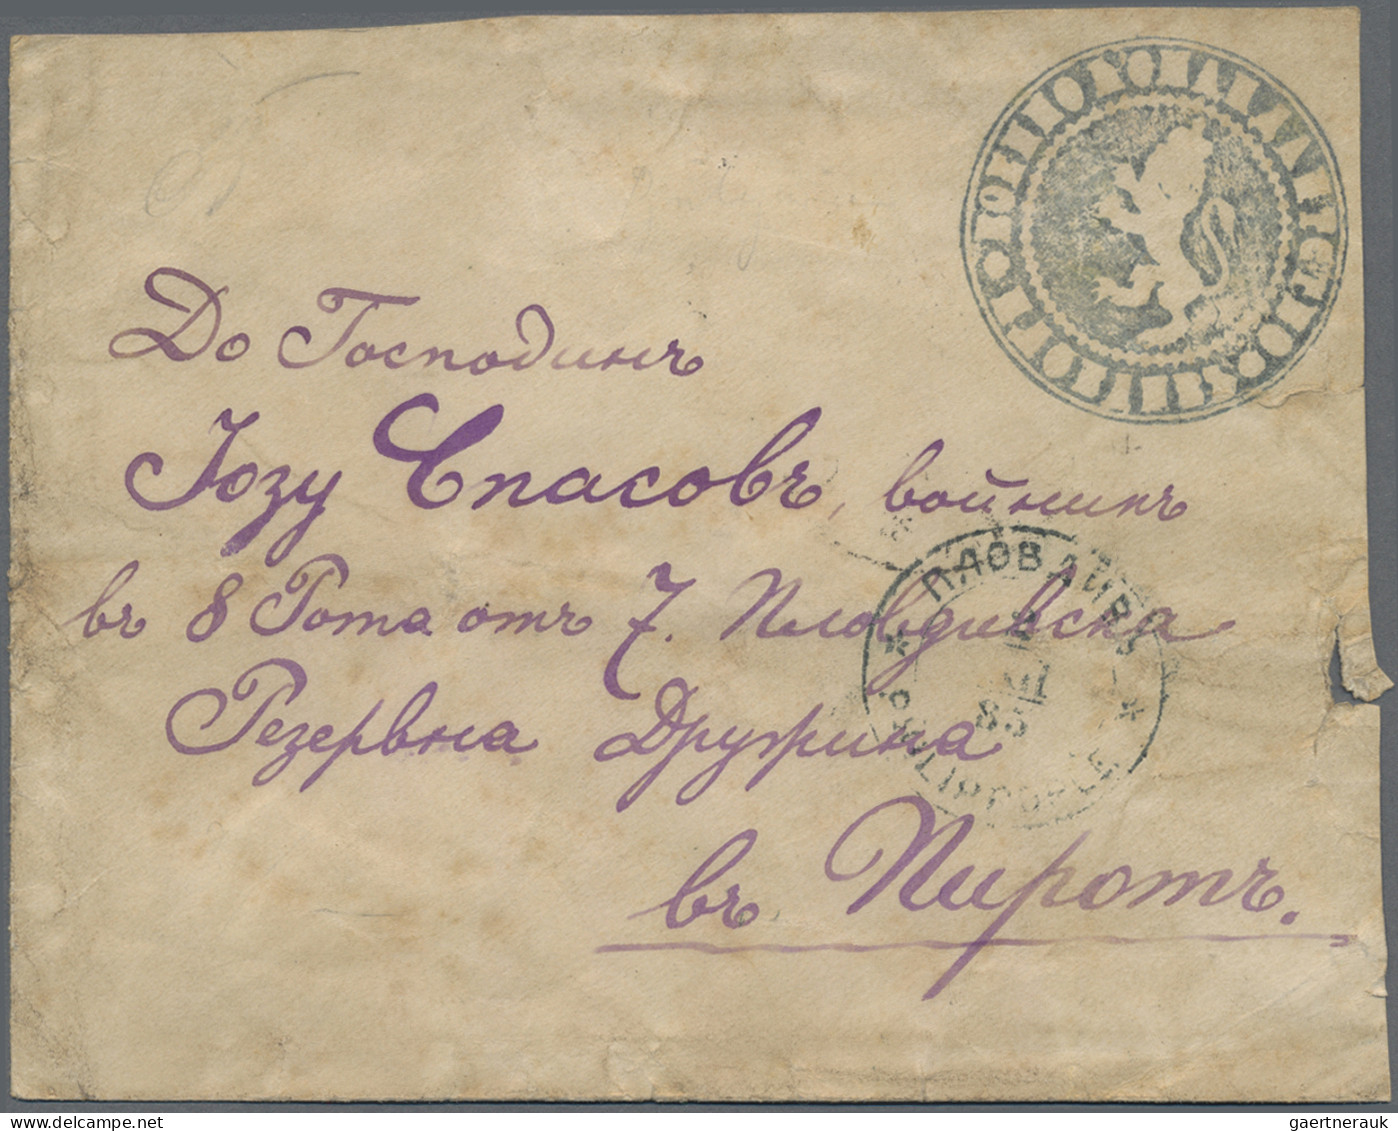 До Господинъ
Іозу Спасовъ, войникъ
въ 8 Рота отъ 7. Пловдивска
Резервна Дружина
въ Пиротъ.
ПЛОВДИВЪ
PHILIPPOPLE
gaertnerauk